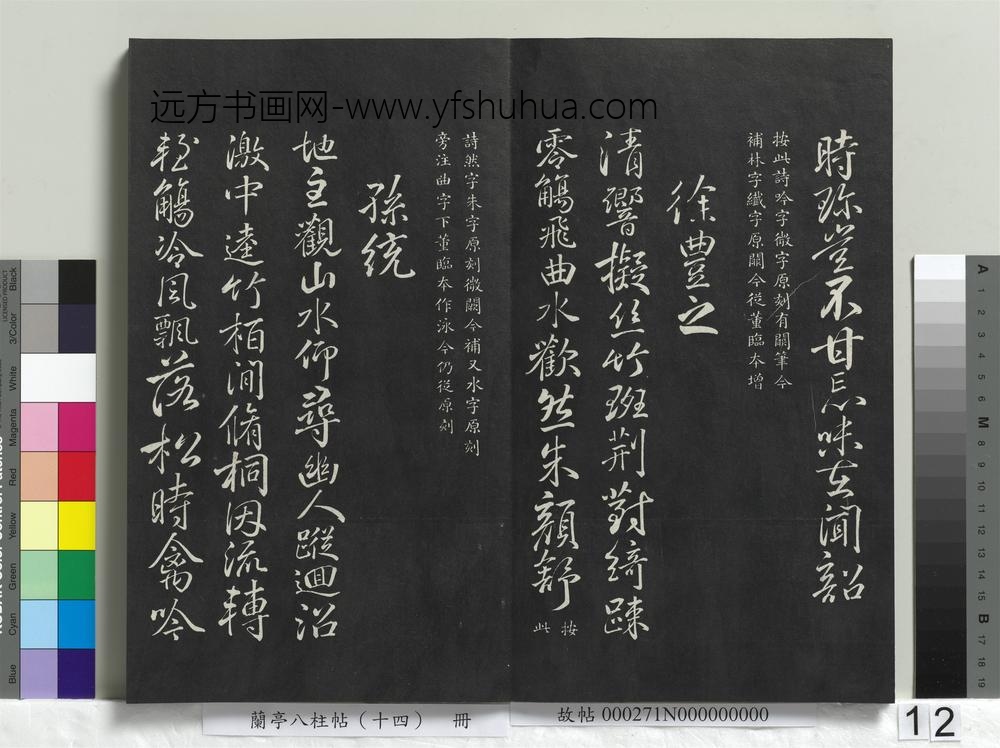 远方书画网-www.yfshuhua.com
時珍豈不甘忘味在聞韶
按此詩吟字微字原刻有闕筆今
補林字纖字原闕今從董臨本增
徐豊之
清響擬絲竹班荆對綺踈
零觴飛曲水歡然朱顔舒
按此
詩然字朱字原刻微闕今補又水字原刻
旁注曲字下董臨本作泳今仍從原刻
孫統
地主觀山水仰尋幽人蹤迴沼
激中逵竹栢澗脩桐因流轉
輕觴冷風飄落松時禽吟
蘭亭八柱帖（十四） 冊
故帖 000271N000000000
12
Black
3/Color
White
Magenta
Red
Yellow
Green
Cyan
Blue
A
1
2
3
4
5
6
M
8
9
10
11
12
13
14
15
B
17
18
19